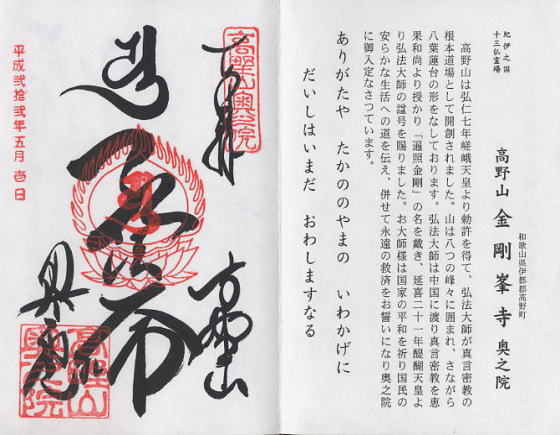 紀伊之国
十三仏霊場
和歌山県伊都郡高野町
高野山 金剛峯寺 奥之院
高野山は弘仁七年嵯峨天皇より勅許を得て、弘法大師が真言密教の
根本道場として開創されました。山は八つの峰々に囲まれ、さながら
八葉蓮台の形をなしております。弘法大師は中国に渡り真言密教を恵
果和尚より授かり「遍照金剛」の名を戴き、延喜二十一年醍醐天皇よ
り弘法大師の諡号を賜りました。お大師様は国家の平和を祈り国民の
安らかな生活への道を伝え、併せて永遠の救済をお誓いになり奥之院
に御入定なさっています。
ありがたや たかののやまの いわかげに
だいしはいまだ おわしますなる
高野山奥之院
高野山
奥之院
平成弐拾弐年五月 日